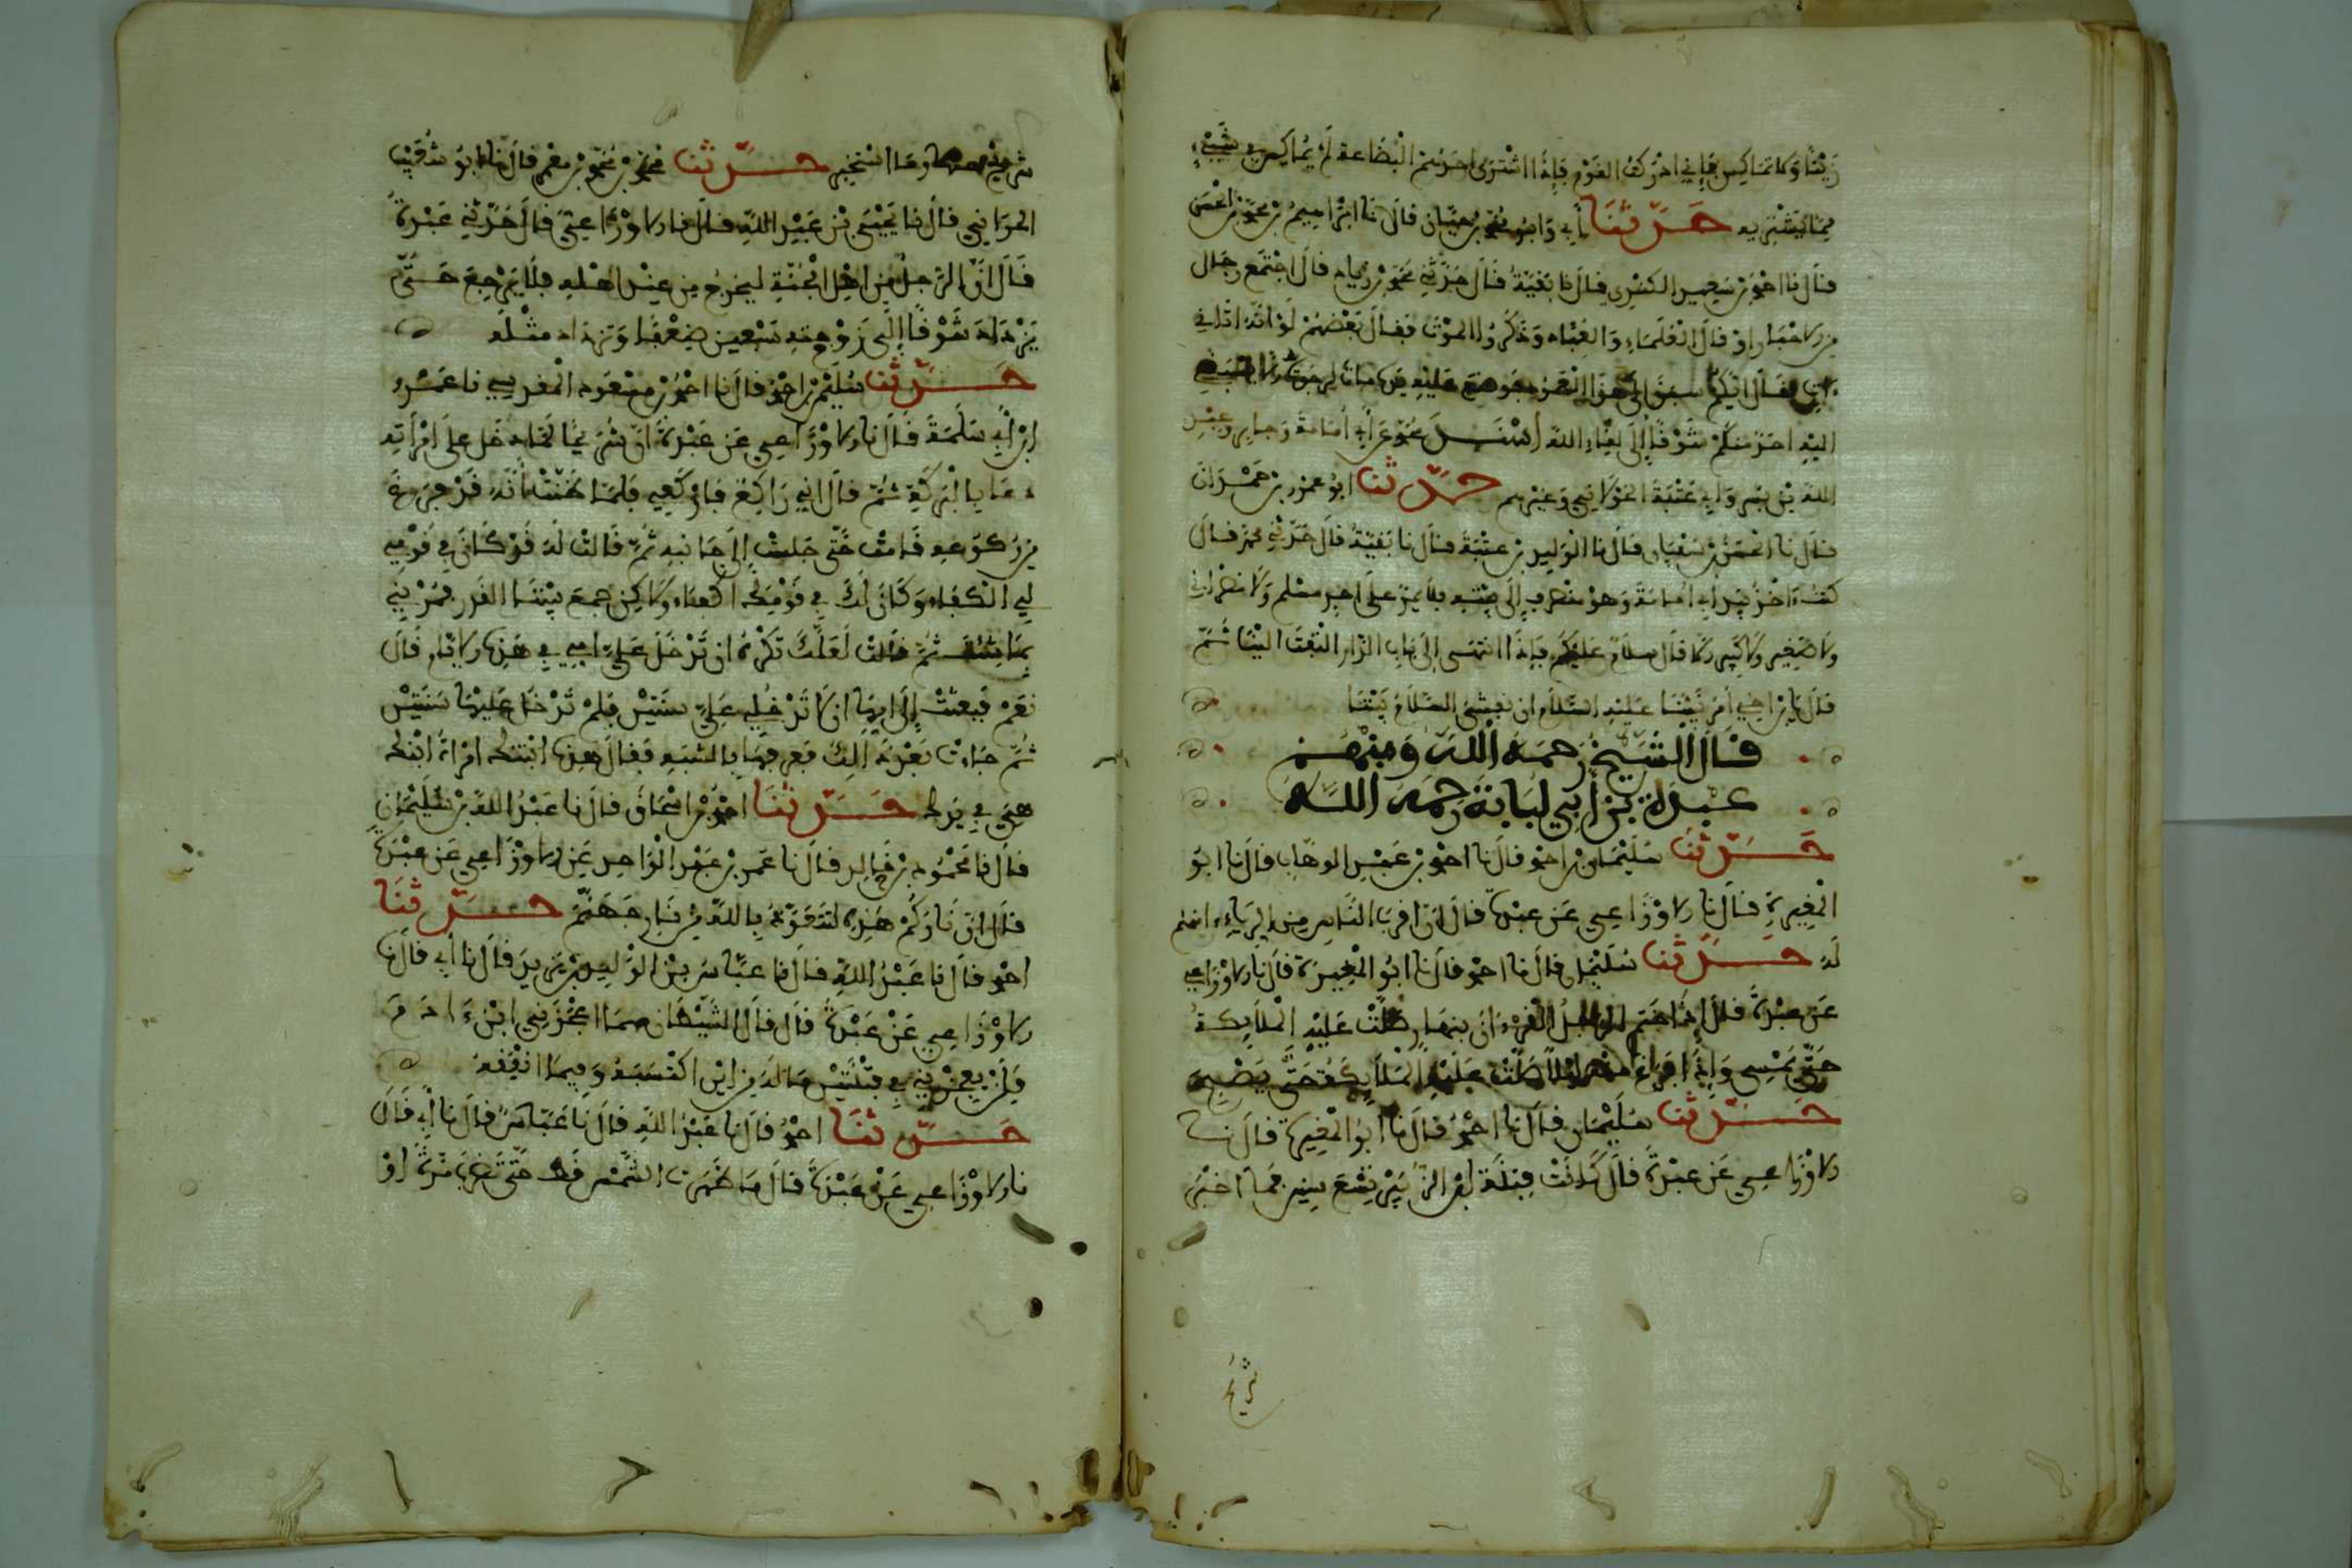 زيتا ولا تماكس فإني أدرك القوم فإذا اشترى أحدهم البضاعة لم يماكس في شيء
مما يشتريه حدثنا أبي وأبو محمد بن حيان قال نا إبراهيم بن محمد بن الحسن
قال نا أحمد بن سعيد الكندي قال نا بقية قال حدثني محمد بن زياد قال اجتمع رجال
من الاخيار او قال العلماء والعباد وذكروا الموت فقال بعضهم لو أنه أتاني
إليه أحد منكم شوقا إلى لقاء الله أسند محمد عن أبي أمامة وجابر وعبد
الله بن بسر وأبي عنبة الخولاني وغيرهم حدثنا أبو عمرو بن حمدان
قال نا الحسن بن سفيان قال نا الوليد بن عتبة قال نا بقية قال حدثني محمد قال
كنت اخذ بيد أبي أمامة وهو منصرف إلى بيته فلا يمر على احد مسلم ولا نصراني
ولا صغير ولا كبير الا قال سلام عليكم فإذا انتهى إلى باب الدار التفت الينا ثم
قال يابن اخي أمر نبينا عليه السلام ان نفشي السلام بيننا
قال الشيخ رحمه الله ومنهم
عبدة بن أبي لبابة رحمه الله
حدثنا سليمان بن احمد قال نا احمد بن عبد الوهاب قال نا ابو
المغيرة قال نا الاوزاعي عن عبدة قال ان اقرب الناس من الرياء امنهم
له حدثنا سليمان قال نا احمد قال نا ابو المغيرة قال نا الاوزاعي
عن عبدة قال إذا ختم الرجل القرءان بنهار صلت عليه الملايكة
حتى يمسي وإذا فرغ منه ليلا صلت عليه الملايكة حتى يصبح
حدثنا سليمان قال نا احمد قال نا أبو المغيرة قال نا
الاوزاعي عن عبدة قال كانت فتنة ابن الزبير تسع سنين فما أخبر
شريح
شريح وما استخبر حدثنا محمد بن محمد بن معمر قال نا ابو شعيب
الحراني قال نا يحيى بن عبد الله قال نا الاوزاعي قال حدثني عبدة
قال ان الرجل من اهل الجنة ليخرج من عند اهله فلا يرجع حتى
يزداد شوقا إلى زوجته سبعين ضعفا وتزداد مثله
حدثنا سليمن بن احمد قال نا احمد بن مسعود المقدسي نا عمرو
ابن أبي سلمة قال نا الاوزاعي عن عبدة ان شريحا لما دخل على امرأته
دعا بالبركة ثم قال اني راكع فاركعي فلما ظننت أنه قد فرغ
من ركوعه قامت حتى جلست إلى جانبه ثم قالت له قد كان في قومي
لي الكفاء وكان لك في قومك اكفاء ولاكن جمع بيننا القدر فمرني
بما شئت ثم قالت لعلك تكره ان تدخل علي امي في هذه الايام قال
نعم فبعثت إلى امها ان لا تدخلي علي سنتين فلم تدخل عليها سنتين
ثم جاءت بعد ذلك فعرفها بالشبه فقال هذه ابنتك امرأة ابنك
هي في يدك حدثنا احمد بن اسحاق قال نا عبد الله بن سليمان
قال نا محمود بن خالد قال نا عمر بن عبد الواحد عن الاوزاعي عن عبدة
قال ان ناركم هذه لتتعوذ بالله من نار جهنم حدثنا
احمد قال نا عبد الله قال نا عباس بن الوليد بن مزيد قال نا أبي قال نا
الاوزاعي عن عبدة قال قال الشيطان مهما اعجزني ابن ءادم
فلن يعجزني في ثنتين ماله من اين اكتسبه وفيما انفقه
حدثنا احمد قال نا عبد الله قال نا عباس قال نا أبي قال
نا الاوزاعي عن عبدة قال ما ظهرت الشمس قط حتى تضرب مرة او